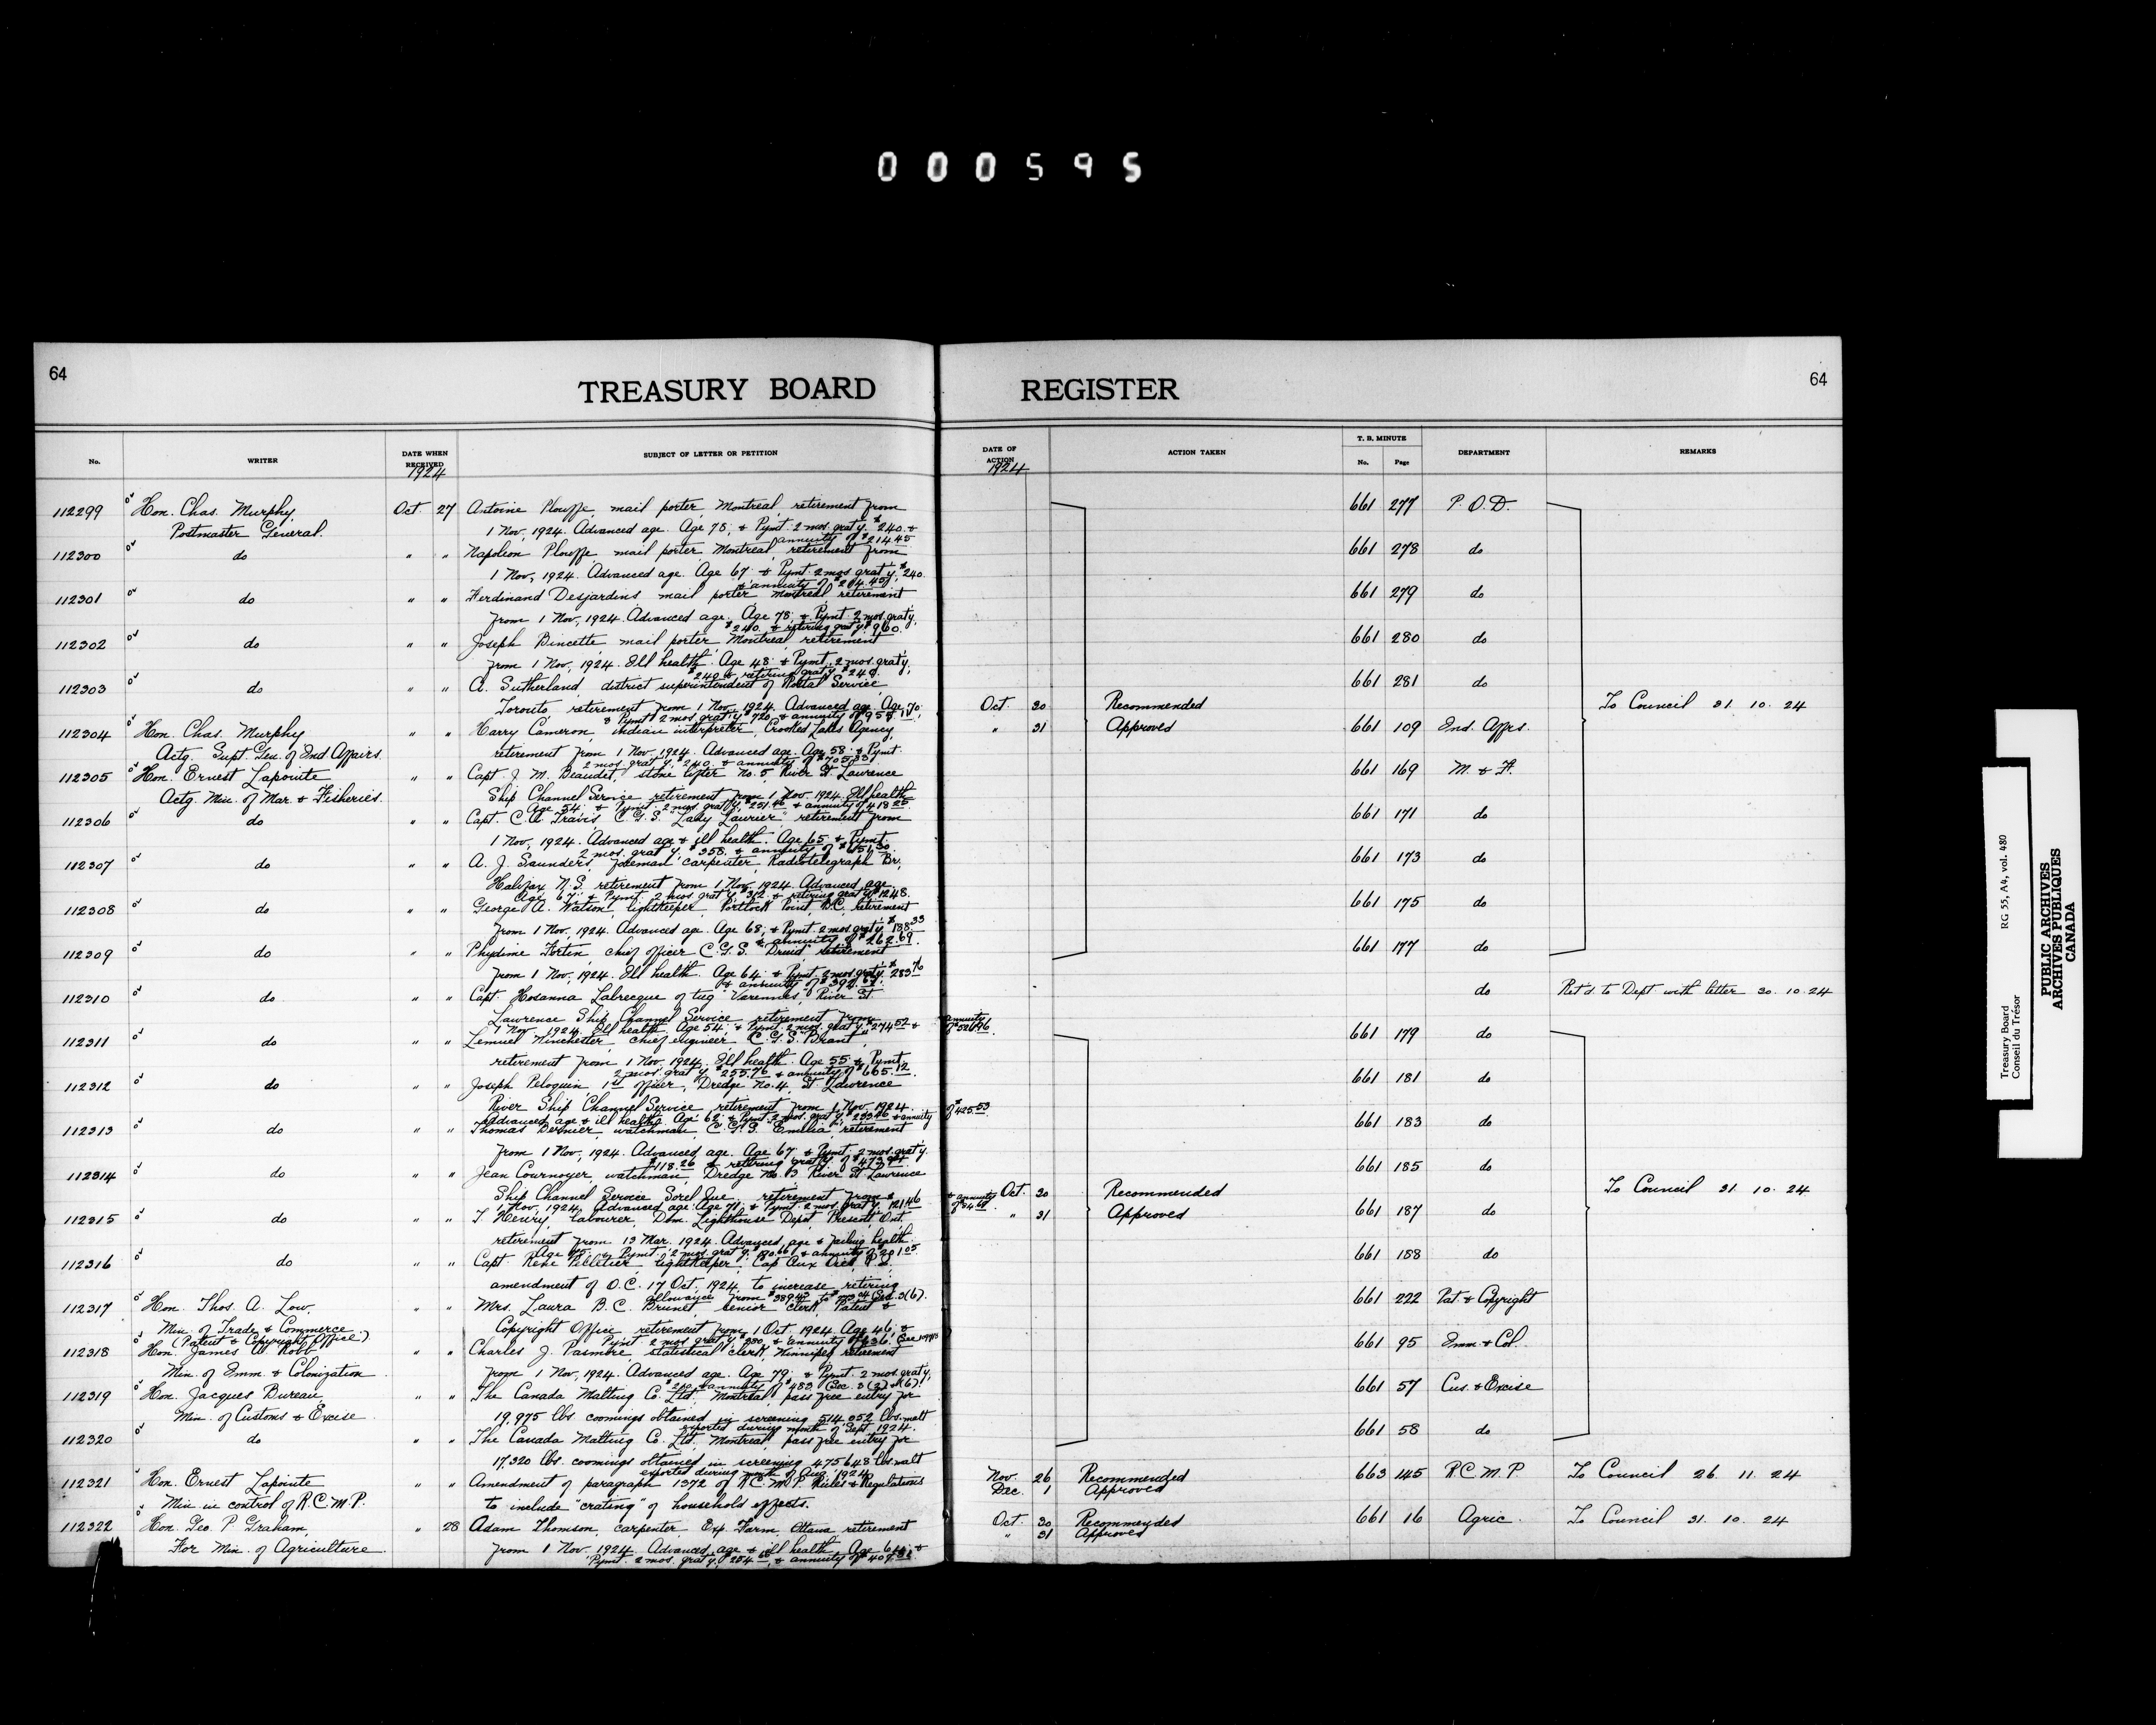 000595
64
TREASURY BOARD REGISTER
64
No. WRITER DATE WHEN RECEIVED 1924 SUBJECT OF LETTER OR PETITION DATE OF ACTION 1924 ACTION TAKEN T. B. MINUTE No. Page DEPARTMENT REMARKS
112299 Hon. Chas. Murphy, Oct. 27 Antoine Plouffe, mail porter, Montreal, retirement from 661 277 P.O.D.
Postmaster General. 1 Nov, 1924. Advanced age. Age 75; & Pymt. 2 mos. grat'y. $240. &
annuity of $214.45
112300 do " " Napoleon Plouffe mail porter Montreal, retirement from 661 278 do
1 Nov, 1924. Advanced age. Age 67. & Pymt. 2 mos grat'y, $240.
& annuity of $204.45
112301 do " " Ferdinand Desjardins mail porter Montreal retirement 661 279 do
from 1 Nov, 1924. Advanced age. Age 78; & Pymt. 2 mos. grat'y.
$240. & retiring grat'y. $960.
112302 do " " Joseph Bincette, mail porter, Montreal, retirement 661 280 do
from 1 Nov, 1924. Ill health. Age 48. & Pymt. 2 mos. grat'y,
$240 & retiring grat'y $240.
112303 do " " A. Sutherland, district superintendent of Postal Service, 661 281 do
Toronto, retirement from 1 Nov, 1924. Advanced age. Age 70; Oct. 30 Recommended To Council 31. 10. 24
& Pymt. 2 mos. grat'y $720, & annuity of
112304 Hon. Chas. Murphy " " Harry Cameron, Indian interpreter, Crooked Lakes Agency, " 31 Approved 661 109 Ind. Affrs.
Actg. Supt. Gen. of Ind Affairs. retirement from 1 Nov. 1924. Advanced age. Age 58. & Pymt.
2 mos. grat'y, $240. & annuity of
112305 Hon. Ernest Lapointe " " Capt. J. M. Beaudet, stone lifter No. 5, River St. Lawrence 661 169 M. & F.
Actg. Min. of Mar. & Fisheries. Ship Channel Service retirement from 1 Nov. 1924. Ill health
Age 54. & Pymt. 2 mos. grat'y, & annuity of $418.25.
112306 do " " Capt. C. A. Travis C.G.S. "Lady Laurier" retirement from 661 171 do
1 Nov, 1924. Advanced age & ill health. Age 65. & Pymt.
2 mos. grat'y. $358. & annuity of
112307 do " " A. J. Saunders, foreman carpenter, Radiotelegraph Br, 661 173 do
Halifax N.S. retirement from 1 Nov, 1924. Advanced age.
Age 67. & Pymt. 2 mos. grat'y, $312. & retiring grat'y $1248.
112308 do " " George A. Watson, lightkeeper, Portlock Point, B.C. retirement 661 175 do
from 1 Nov, 1924. Advanced age. Age 68; & Pymt. 2 mos. grat'y. $188.33
& annuity of $262.69.
112309 do " " Phydime Fortin, chief officer C.G.S. "Druid" retirement 661 177 do
from 1 Nov, 1924. Ill health. Age 64. & Pymt. 2 mos. grat'y. $283.76
& annuity of
112310 do " " Capt. Hosanna Labrecque of tug "Varennes", River St. do Ret'd. to Dept. with letter 30. 10. 24
Lawrence Ship Channel Service, retirement from
1 Nov, 1924. Ill health, Age 54. & Pymt. 2 mos. grat'y. $274.52 & annuity of $526.96
112311 do " " Lemuel Winchester, chief engineer, C.G.S. "Brant", 661 179 do
retirement from 1 Nov, 1924. Ill health. Age 55 & Pymt.
2 mos. grat'y $255.76 & annuity of $665.12
112312 do " " Joseph Peloquin, 1st officer, Dredge No. 4. St Lawrence 661 181 do
River Ship Channel Service, retirement from 1 Nov. 1924.
Advanced age & ill health. Age 62. & Pymt. 2 mos. grat'y $233.46 & annuity of $425.53
112313 do " " Thomas Bernier, watchman, C.G.S. Emilia, retirement 661 183 do
from 1 Nov, 1924. Advanced age. Age 67 & Pymt. 2 mos. grat'y.
$118.26 & retiring grat'y. of
112314 do " " Jean Cournoyer, watchman, Dredge No. 3 River St Lawrence 661 185 do
Ship Channel Service Sorel Que. retirement from Oct. 30 Recommended To Council 31. 10. 24
1 Nov, 1924. Advanced age. Age 71. & Pymt. 2 mos. grat'y. $121.46 & annuity of
112315 do " " T. Henry, labourer, Dom. Lighthouse Depot, Prescott Ont. " 31 Approved 661 187 do
retirement from 13 Mar. 1924. Advanced age & failing health.
Age 75. & Pymt. 2 mos. grat'y. & annuity of $201.05
112316 do " " Capt. Rene Pelletier, lightkeeper, Cap Aux Oies P.Q. 661 188 do
amendment of O.C. 17 Oct. 1924 to increase retiring
allowance from $389.43 to Sec. 3(6).
112317 Hon. Thos. A. Low, " " Mrs. Laura B. C. Brunet senior clerk Patent & 661 222 Pat. & Copyright
Min. of Trade & Commerce Copyright Office retirement from 1 Oct. 1924. Age 46; &
(Patent & Copyright Office). Pymt. 2 mos. grat'y, & annuity of $636.
112318 Hon. James A. Robb " " Charles J. Pasmore, statistical clerk, Winnipeg retirement 661 95 Imm. & Col.
Min. of Imm. & Colonization from 1 Nov, 1924. Advanced age. Age 79; & Pymt. 2 mos. grat'y,
& annuity of $483. Sec. 3(2) & (6).
112319 Hon. Jacques Bureau " " The Canada Malting Co. Ltd. Montreal, pass free entry for 661 57 Cus. & Excise
Min. of Customs & Excise. 19,975 lbs. coomings obtained in screening 514,052 lbs. malt
exported during month of Sept. 1924.
112320 do " " The Canada Malting Co. Ltd. Montreal, pass free entry for 661 58 do
17,320 lbs. coomings obtained in screening 475648 lbs. malt
exported during month of Aug. 1924.
112321 Hon. Ernest Lapointe " " Amendment of paragraph 1372 of R.C.M.P. Rules & Regulations Nov. 26 Recommended 663 145 R.C.M.P. To Council 26. 11. 24
Min. in control of R.C.M.P. to include "crating" of household effects. Dec. 1 Approved
112322 Hon. Geo. P. Graham, " 28 Adam Thomson, carpenter, Exp. Farm, Ottawa retirement Oct. 30 Recommended 661 16 Agric. To Council 31. 10. 24
For Min. of Agriculture. from 1 Nov. 1924. Advanced age & ill health, Age 64; & " 31 Approved
Pymt. 2 mos. grat'y. & annuity of
Treasury Board RG 55, A4, vol. 480
Conseil du Trésor
PUBLIC ARCHIVES
ARCHIVES PUBLIQUES
CANADA